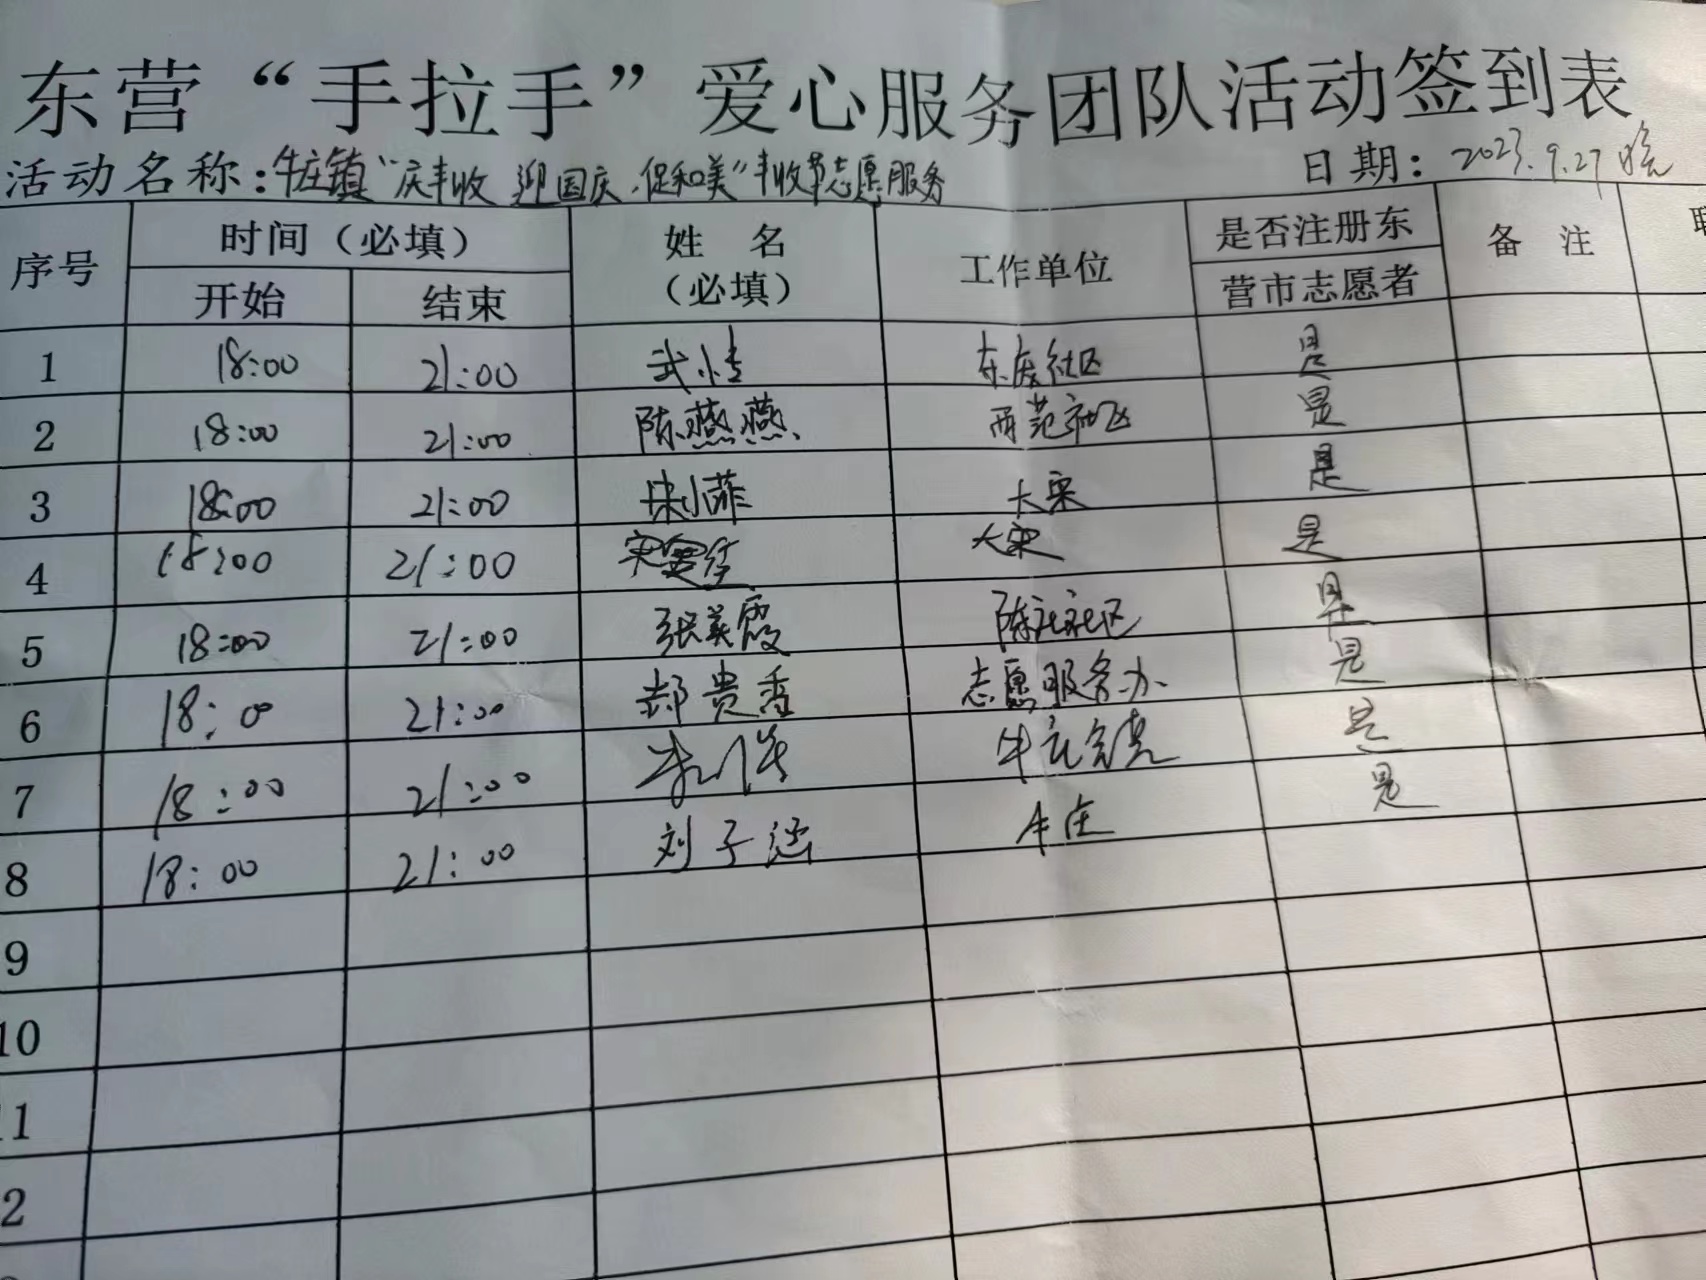 东营“手拉手”爱心服务团队活动签到表
活动名称：牛庄镇“庆丰收 迎国庆.促和美”丰收节志愿服务 日期：2023.9.27 晚
序号 时间（必填） 姓名（必填） 工作单位 是否注册东营市志愿者 备注
开始 结束
1 18:00 21:00 武 社区 是
2 18:00 21:00 陈燕燕 西范社区 是
3 18:00 21:00 小菲 大宋 是
4 18:00 21:00 宋 大宋 是
5 18:00 21:00 张美霞 社区 是
6 18:00 21:00 郝贵香 志愿服务办 是
7 18:00 21:00 牛庄 是
8 18:00 21:00 刘子涵 牛庄 是
9
10
11
2